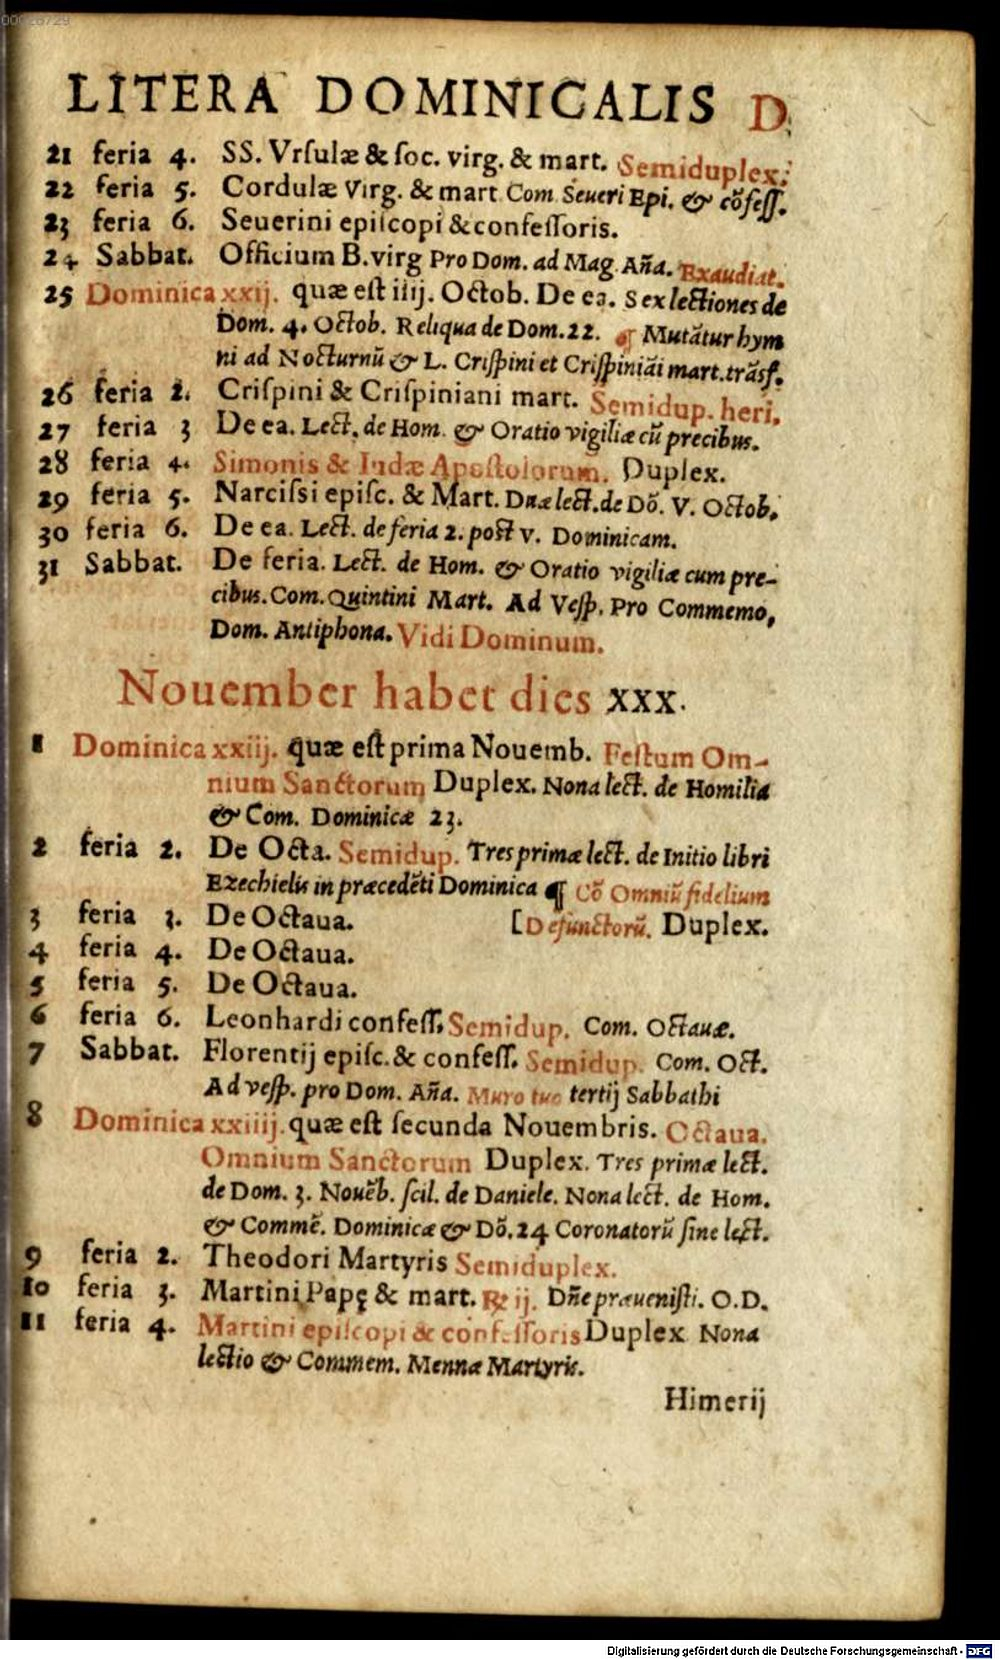 00028729
LITERA DOMINICALIS D.
21 feria 4. SS. Vrſulæ & ſoc. virg. & mart. Semiduplex.
22 feria 5. Cordulæ Virg. & mart Com Seueri Epi. & cõfeſſ.
23 feria 6. Seuerini epiſcopi & confeſſoris.
24 Sabbat. Officium B. virg Pro Dom. ad Mag. Añã. Exaudiat.
25 Dominica xxij. quæ eſt iiij. Octob. De ea. Sex lectiones de
Dom. 4. Octob. Reliqua de Dom. 22. ¶ Mutãtur hym
ni ad Nocturnũ & L. Criſpini et Criſpiniãi mart. trãſf.
26 feria 2. Criſpini & Criſpiniani mart. Semidup. heri.
27 feria 3 De ea. Lect. de Hom. & Oratio vigiliæ cũ precibus.
28 feria 4. Simonis & Iudæ Apoſtolorum. Duplex.
29 feria 5. Narciſsi epiſc. & Mart. Duæ lect. de Dõ. V. Octob.
30 feria 6. De ea. Lect. de feria 2. poſt v. Dominicam.
31 Sabbat. De feria. Lect. de Hom. & Oratio vigiliæ cum pre-
cibus. Com. Quintini Mart. Ad Veſp. Pro Commemo,
Dom. Antiphona. Vidi Dominum.
Nouember habet dies XXX.
1 Dominica xxiij. quæ eſt prima Nouemb. Feſtum Om-
nium Sanctorum Duplex. Nona lect. de Homilia
& Com. Dominicæ 23.
2 feria 2. De Octa. Semidup. Tres primæ lect. de Initio libri
Ezechielis in præcedẽti Dominica ¶ Cõ Omniũ fidelium
3 feria 3. De Octaua. [Defunctorũ. Duplex.
4 feria 4. De Octaua.
5 feria 5. De Octaua.
6 feria 6. Leonhardi confeſſ. Semidup. Com. Octauæ.
7 Sabbat. Florentij epiſc. & confeſſ. Semidup. Com. Oct.
Ad veſp. pro Dom. Añã. Muro tuo tertij Sabbathi
8 Dominica xxiiij. quæ eſt ſecunda Nouembris. Octaua.
Omnium Sanctorum Duplex. Tres primæ lect.
de Dom. 3. Nouẽb. ſcil. de Daniele. Nona lect. de Hom.
& Commẽ. Dominicæ & Dõ. 24 Coronatorũ ſine lect.
9 feria 2. Theodori Martyris Semiduplex.
10 feria 3. Martini Papę & mart. ℞ ij. Dñe præueniſti. O. D.
11 feria 4. Martini epiſcopi & confeſſoris Duplex Nona
lectio & Commem. Mennæ Martyris.
Himerij
Digitalisierung gefördert durch die Deutsche Forschungsgemeinschaft - DFG